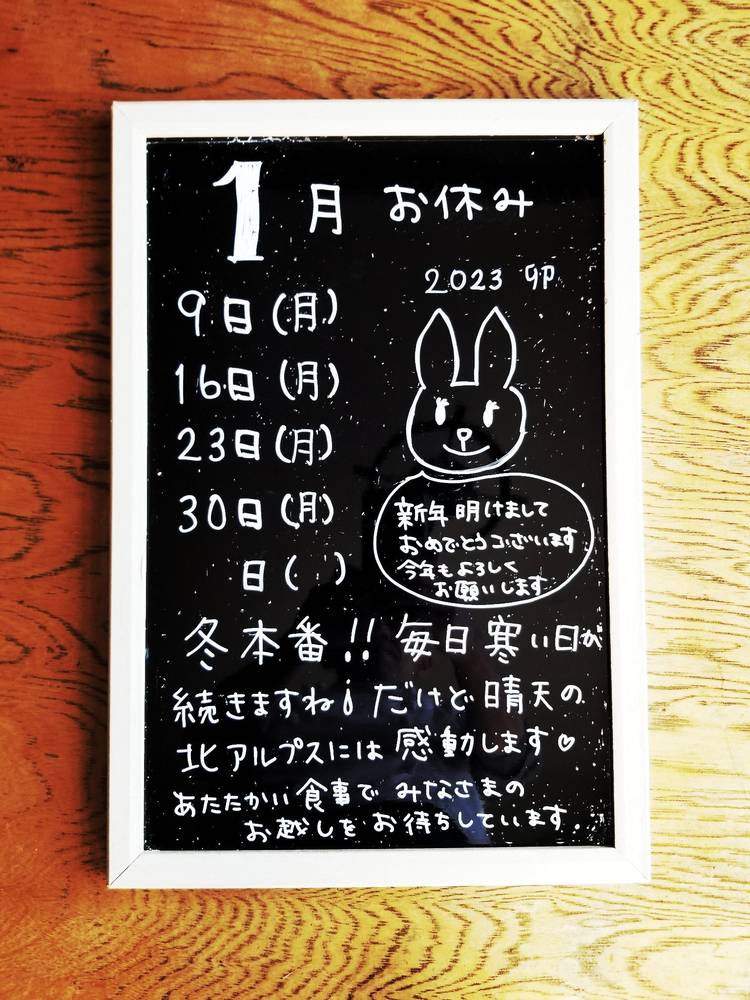 1月 お休み
2023 卯
9日(月)
16日(月)
23日(月)
30日(月)
日( )
新年 明けまして
おめでとうございます
今年もよろしく
お願いします
冬本番!! 毎日寒い日が
続きますね¡ だけど晴天の
北アルプスには感動します♡
あたたかい食事で みなさまの
お越しをお待ちしています.